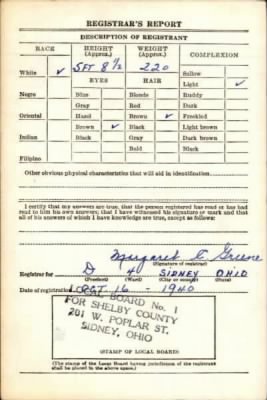 REGISTRAR'S REPORT
DESCRIPTION OF REGISTRANT
RACE HEIGHT (Approx.) WEIGHT (Approx.) COMPLEXION
White ✓ 5FT 8½ 220 Sallow
EYES HAIR Light ✓
Negro Blue Blonde Ruddy
Gray Red Dark
Oriental Hazel Brown ✓ Freckled
Brown ✓ Black Light brown
Indian Black Gray Dark brown
Bald Black
Filipino
Other obvious physical characteristics that will aid in identification
I certify that my answers are true; that the person registered has read or has had
read to him his own answers; that I have witnessed his signature or mark and that
all of his answers of which I have knowledge are true, except as follows:
Margaret E. Greene
(Signature of registrar)
Registrar for D 4 SIDNEY OHIO
(Precinct) (Ward) (City or county) (State)
Date of registration OCT 16 - 1940
LOCAL BOARD No. 1
FOR SHELBY COUNTY
201 W. POPLAR ST.
SIDNEY, OHIO
(STAMP OF LOCAL BOARD)
(The stamp of the Local Board having jurisdiction of the registrant
shall be placed in the above space.)